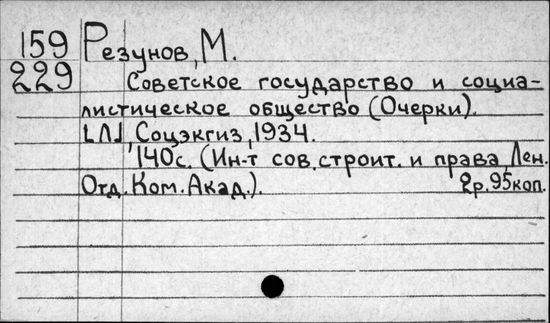 159 Резунов, М.
229 Советское государство и социа-
листическое общество (Очерки).
[Л], Соцэкгиз, 1934.
140 с. (Ин-т сов. строит. и права Лен.
Отд. Ком. Акад.). 2р. 95коп.